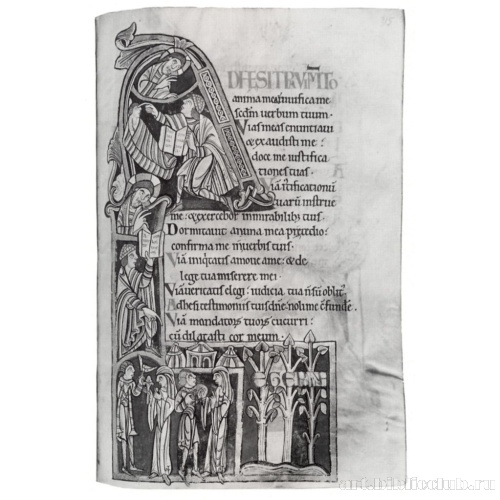 ADHESIT PAVIMTO
anima mea: vivifica me
scdm verbum tuum.
Vias meas enuntiavi
& exaudisti me:
doce me iustifica
tiones tuas.
Viā iustificationū
tuarū instrue
me: & exercebor in mirabilib; tuis.
Dormitavit anima mea p̄ tedio:
confirma me in verbis tuis.
Viā iniq̄tatis amove a me: & de
lege tua miserere mei.
Viā veritatis elegi: iudicia tua n̄ sū oblit;
Adhesi testimoniis tuis dn̄e: noli me cfunde.
Viā mandatorū tuorū cucurri:
cū dilatasti cor meum.